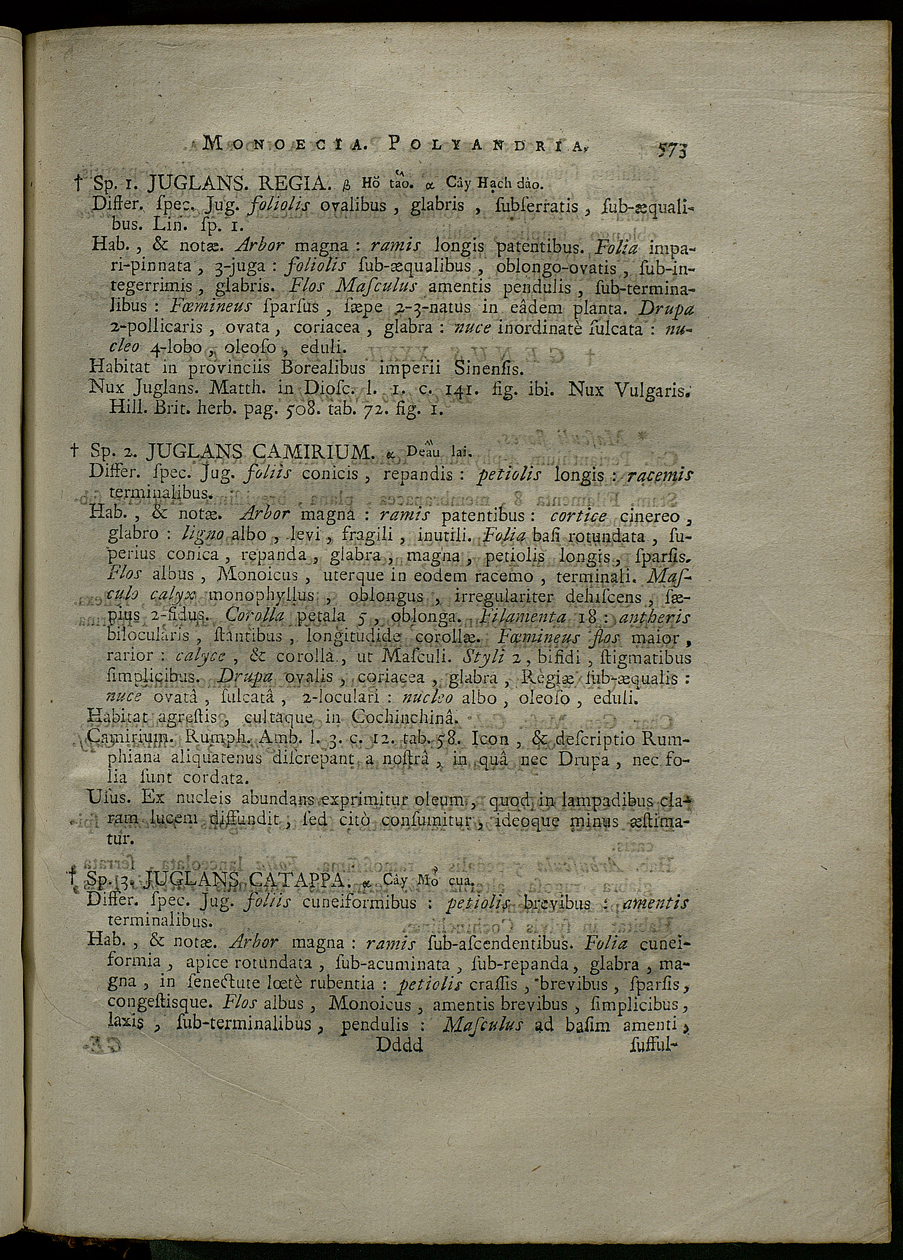 MONOECIA. POLYANDRIA. 573
† Sp. 1. JUGLANS. REGIA. β Hồ tâo. α Cây Hạch dào.
Differ. ſpec. Jug. foliolis ovalibus , glabris , ſubſerratis , ſub-æquali-
bus. Lin. ſp. 1.
Hab. , & notæ. Arbor magna : ramis longis patentibus. Folia impa-
ri-pinnata , 3-juga : foliolis ſub-æqualibus , oblongo-ovatis , ſub-in-
tegerrimis , glabris. Flos Maſculus amentis pendulis , ſub-termina-
libus : Fœmineus ſparſus , ſæpe 2-3-natus in eâdem planta. Drupa
2-pollicaris , ovata , coriacea , glabra : nuce inordinatè ſulcata : nu-
cleo 4-lobo , oleoſo , eduli.
Habitat in provinciis Borealibus imperii Sinenſis.
Nux Juglans. Matth. in Dioſc. l. 1. c. 141. fig. ibi. Nux Vulgaris.
Hill. Brit. herb. pag. 508. tab. 72. fig. 1.
† Sp. 2. JUGLANS CAMIRIUM. α Deâu lai.
Differ. ſpec. Jug. foliis conicis , repandis : petiolis longis : racemis
terminalibus.
Hab. , & notæ. Arbor magna : ramis patentibus : cortice cinereo ,
glabro : ligno albo , levi , fragili , inutili. Folia baſi rotundata , ſu-
perius conica , repanda , glabra , magna , petiolis longis , ſparſis.
Flos albus , Monoicus , uterque in eodem racemo , terminali. Maſ-
culo calyx monophyllus , oblongus , irregulariter dehiſcens , ſæ-
pius 2-fidus. Corolla petala 5 , oblonga. Filamenta 18 : antheris
bilocularis , ſtantibus , longitudide corollæ. Fœmineus flos maior ,
rarior : calyce , & corollâ , ut Maſculi. Styli 2 , bifidi , ſtigmatibus
ſimplicibus. Drupa ovalis , coriacea , glabra , Regiæ ſub-æqualis :
nuce ovatâ , ſulcatâ , 2-loculari : nucleo albo , oleoſo , eduli.
Habitat agreſtis , cultaque in Cochinchinâ.
Camirium. Rumph. Amb. l. 3. c. 12. tab. 58. Icon , & deſcriptio Rum-
phiana aliquatenus diſcrepant a noſtrâ , in quâ nec Drupa , nec fo-
lia ſunt cordata.
Uſus. Ex nucleis abundans exprimitur oleum , quod in lampadibus cla-
ram lucem diffundit , ſed citò conſumitur , ideoque minus æſtima-
tur.
† Sp. 3. JUGLANS CATAPPA. α Cây Mỏ cua.
Differ. ſpec. Jug. foliis cuneiformibus : petiolis brevibus : amentis
terminalibus.
Hab. , & notæ. Arbor magna : ramis ſub-aſcendentibus. Folia cunei-
formia , apice rotundata , ſub-acuminata , ſub-repanda , glabra , ma-
gna , in ſenectute lœtè rubentia : petiolis craſſis , brevibus , ſparſis ,
congeſtisque. Flos albus , Monoicus , amentis brevibus , ſimplicibus ,
laxis , ſub-terminalibus , pendulis : Maſculus ad baſim amenti ,
Dddd ſufful-